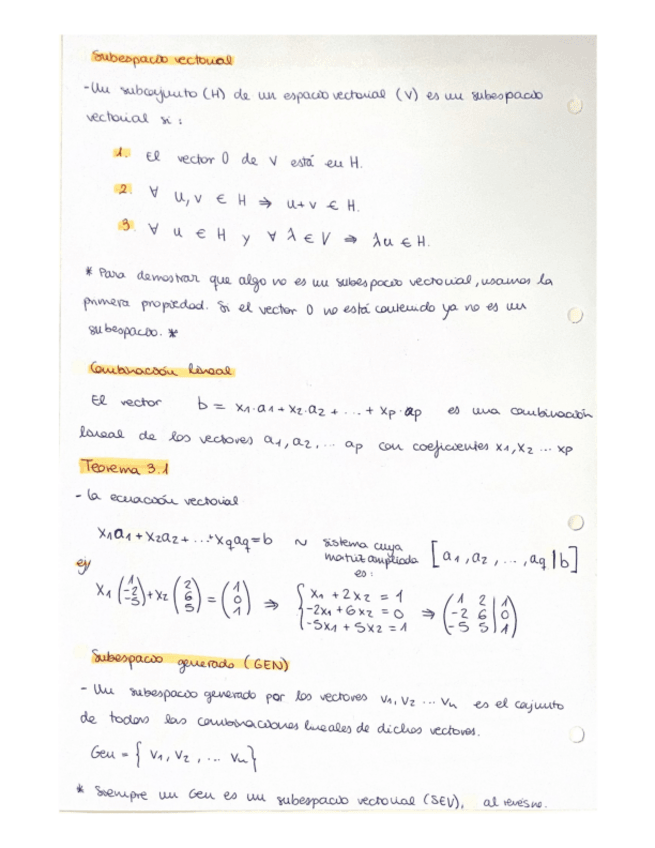 Subespacio vectorial
- Un subconjunto (H) de un espacio vectorial (V) es un subespacio
vectorial si :
1. El vector 0 de V está en H.
2. ∀ u, v ∈ H ⇒ u+v ∈ H.
3. ∀ u ∈ H y ∀ λ ∈ V ⇒ λu ∈ H.
* Para demostrar que algo no es un subespacio vectorial, usamos la
primera propiedad. Si el vector 0 no está contenido ya no es un
subespacio. *
Combinación lineal
El vector b = x1·a1 + x2·a2 + ... + xp·ap es una combinación
lineal de los vectores a1, a2, ... ap con coeficientes x1, x2 ... xp
Teorema 3.1
- la ecuación vectorial
x1a1 + x2a2 + ... + xqaq = b ~ sistema cuya matriz ampliada es : [a1, a2, ..., aq | b]
ej
x1 (1 -2 -5) + x2 (2 6 5) = (1 0 1) ⇒ { x1 + 2x2 = 1 -2x1 + 6x2 = 0 -5x1 + 5x2 = 1 ⇒ (1 2 | 1 -2 6 | 0 -5 5 | 1)
Subespacio generado (GEN)
- Un subespacio generado por los vectores v1, v2 ... vn es el cojunto
de todas las combinaciones lineales de dichos vectores.
Gen = { v1, v2, ... vn }
* Siempre un Gen es un subespacio vectorial (SEV), al revés no.